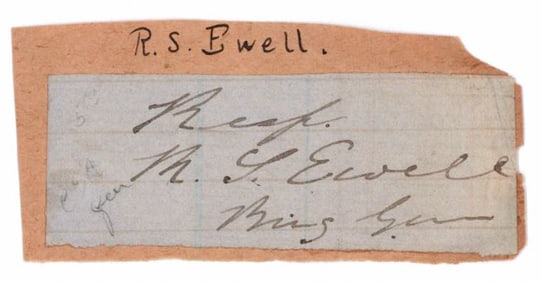 R. S. Ewell.
Resp.
R. S. Ewell
Brig Gen